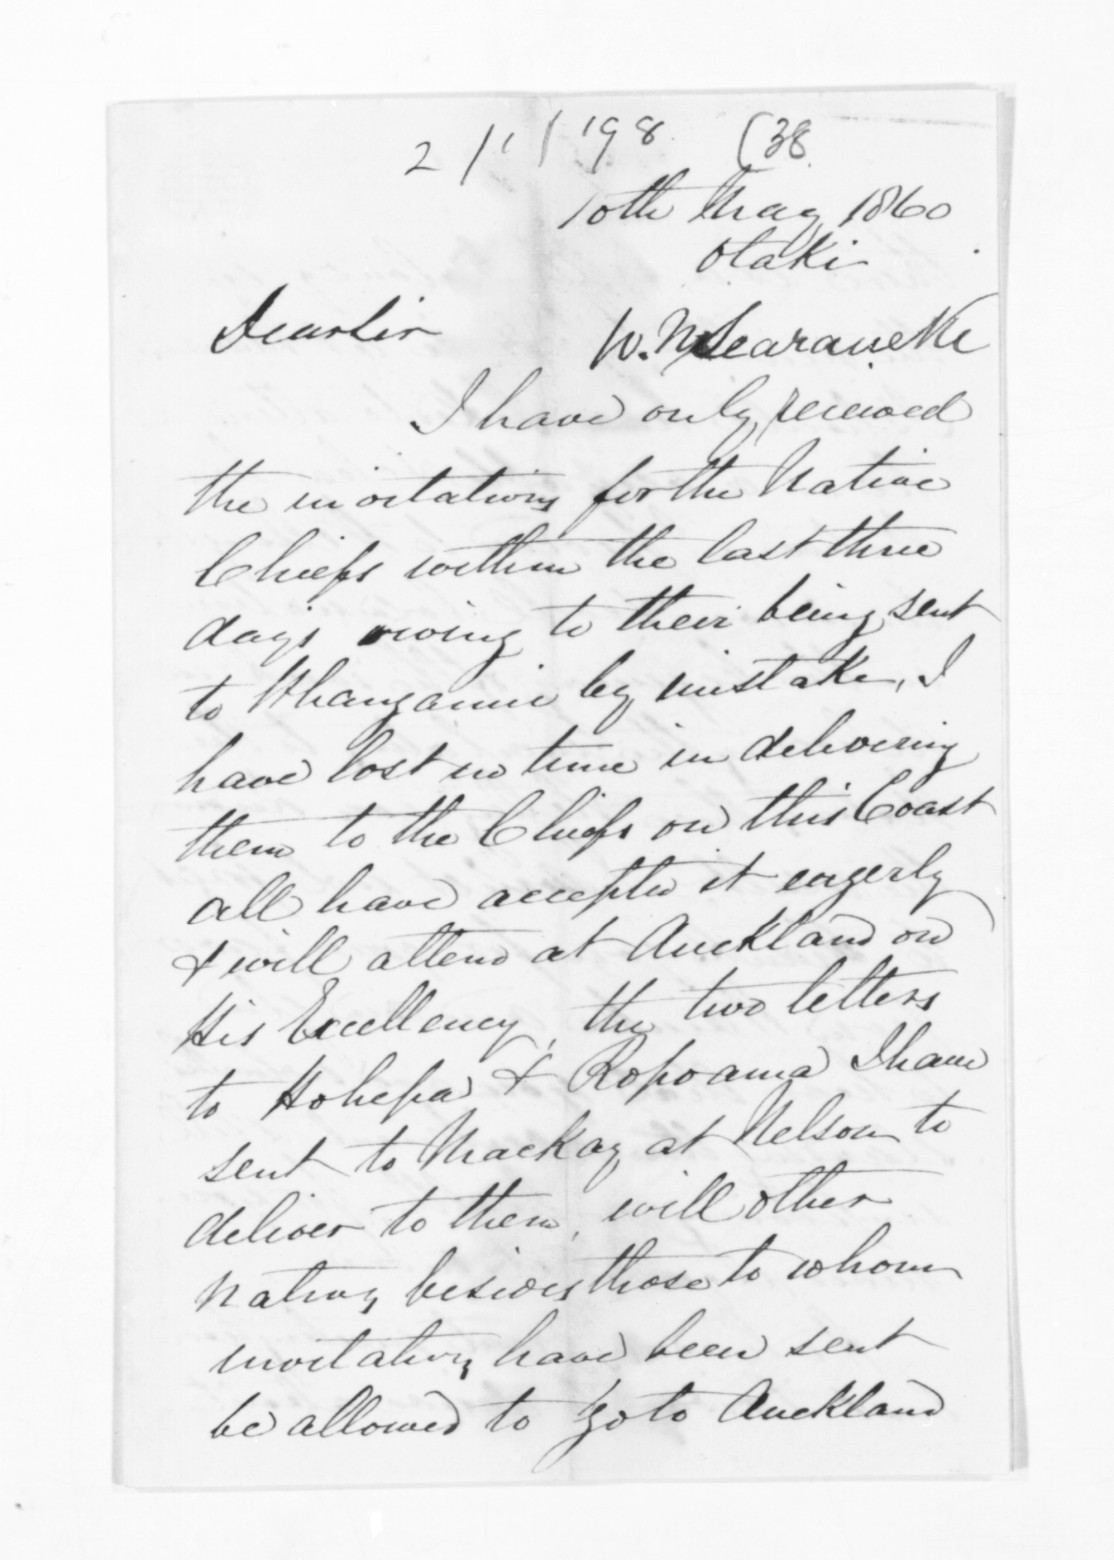 2/1/198 (38
10th May 1860
Otaki
Dear Sir W. N. Searancke
I have only received
the invitations for the Native
Chiefs within the last three
days owing to their being sent
to Whanganui by mistake, I
have lost no time in delivering
them to the Chiefs on this Coast
all have accepted it eagerly
& will attend at Auckland on
His Excellency, the two letters
to Hohepa & Ropoama I have
sent to Mackay at Nelson to
deliver to them, will other
natives besides those to whom
invitations have been sent
be allowed to go to Auckland